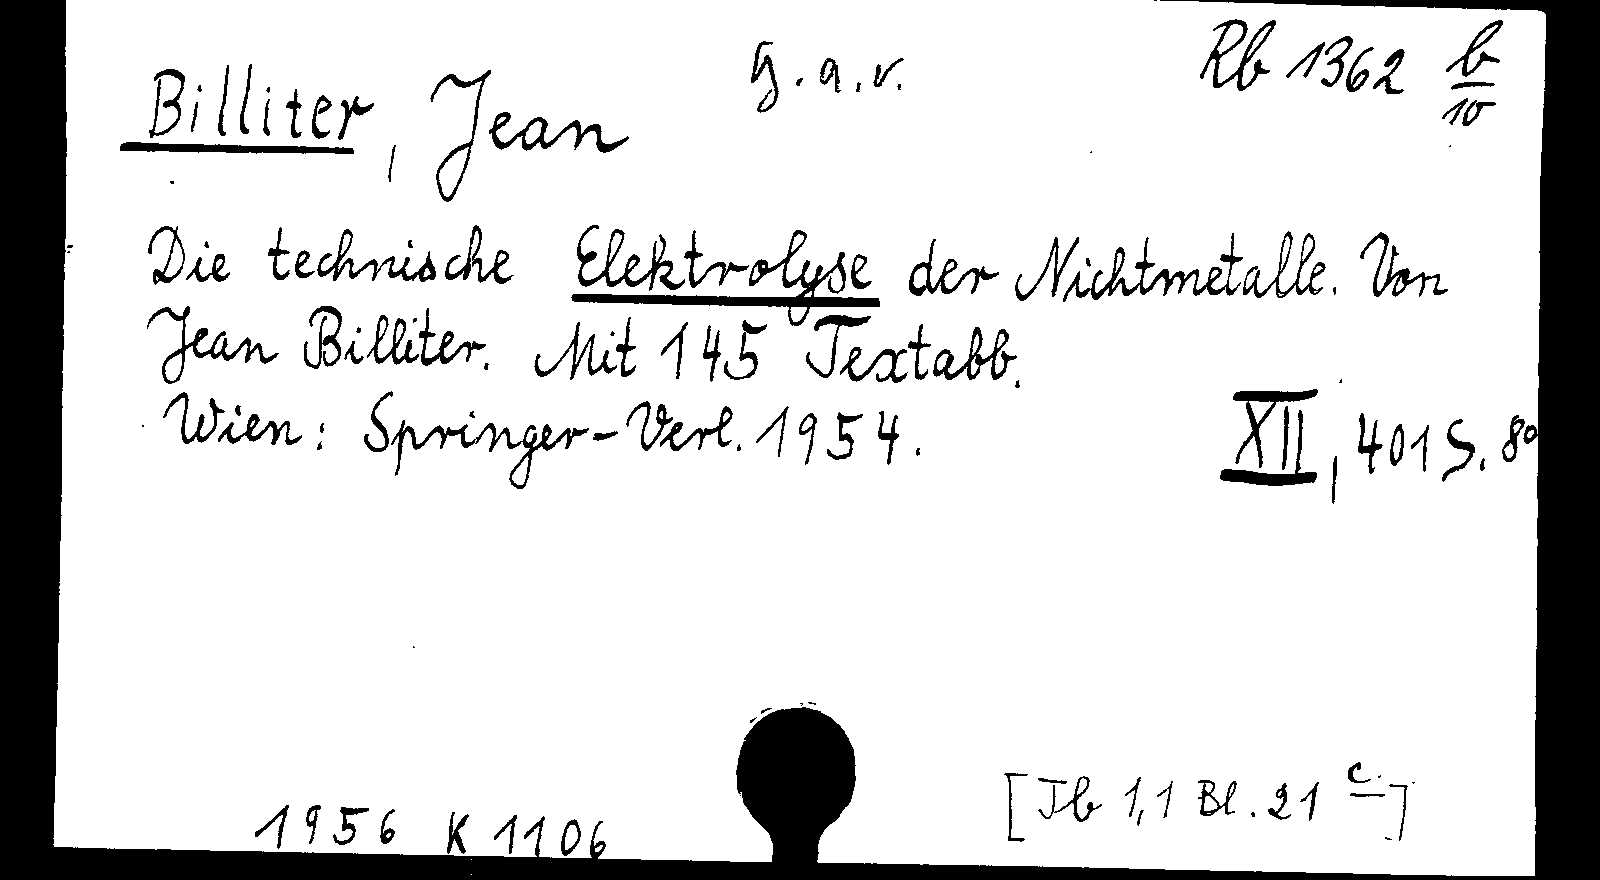 Billiter, Jean
G.a.v.
Rb 1362 b/10
Die technische Elektrolyse der Nichtmetalle. Von
Jean Billiter. Mit 145 Textabb.
Wien: Springer-Verl. 1954.
XII, 401 S. 8°
1956 K 1106
[Jb 1,1 Bl. 21 c]